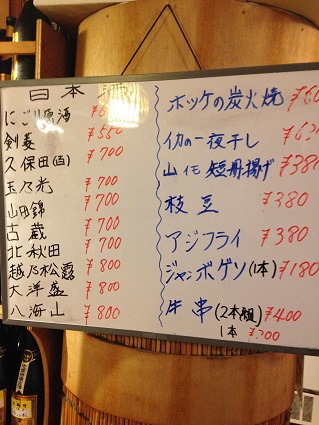 日本酒
にごり原酒
剣菱 ¥550
久保田(百) ¥700
玉乃光 ¥700
山田錦 ¥700
古蔵 ¥700
北秋田 ¥700
越乃松露 ¥800
大洋盛 ¥800
八海山 ¥800
ホッケの炭火焼
イカの一夜干し
山イモ短冊揚げ ¥380
枝豆 ¥380
アジフライ ¥380
ジャンボゲソ(1本) ¥180
牛串(2本組) ¥400
1本 ¥200